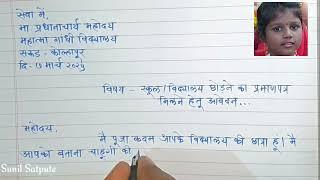 सेवा में,
मा प्रधानाचार्य महोदय
महात्मा गांधी विद्यालय
सरुड - कोल्हापूर
दि- ७ मार्च २०२५
विषय - स्कूल / विद्यालय छोडने का प्रमाणपत्र
मिलने हेतू आवेदन...
महोदय,
मै पूजा कदम आपके विद्यालय की छात्रा हूं। मै
आपको बताना चाहूंगी की
Sunil Satpute